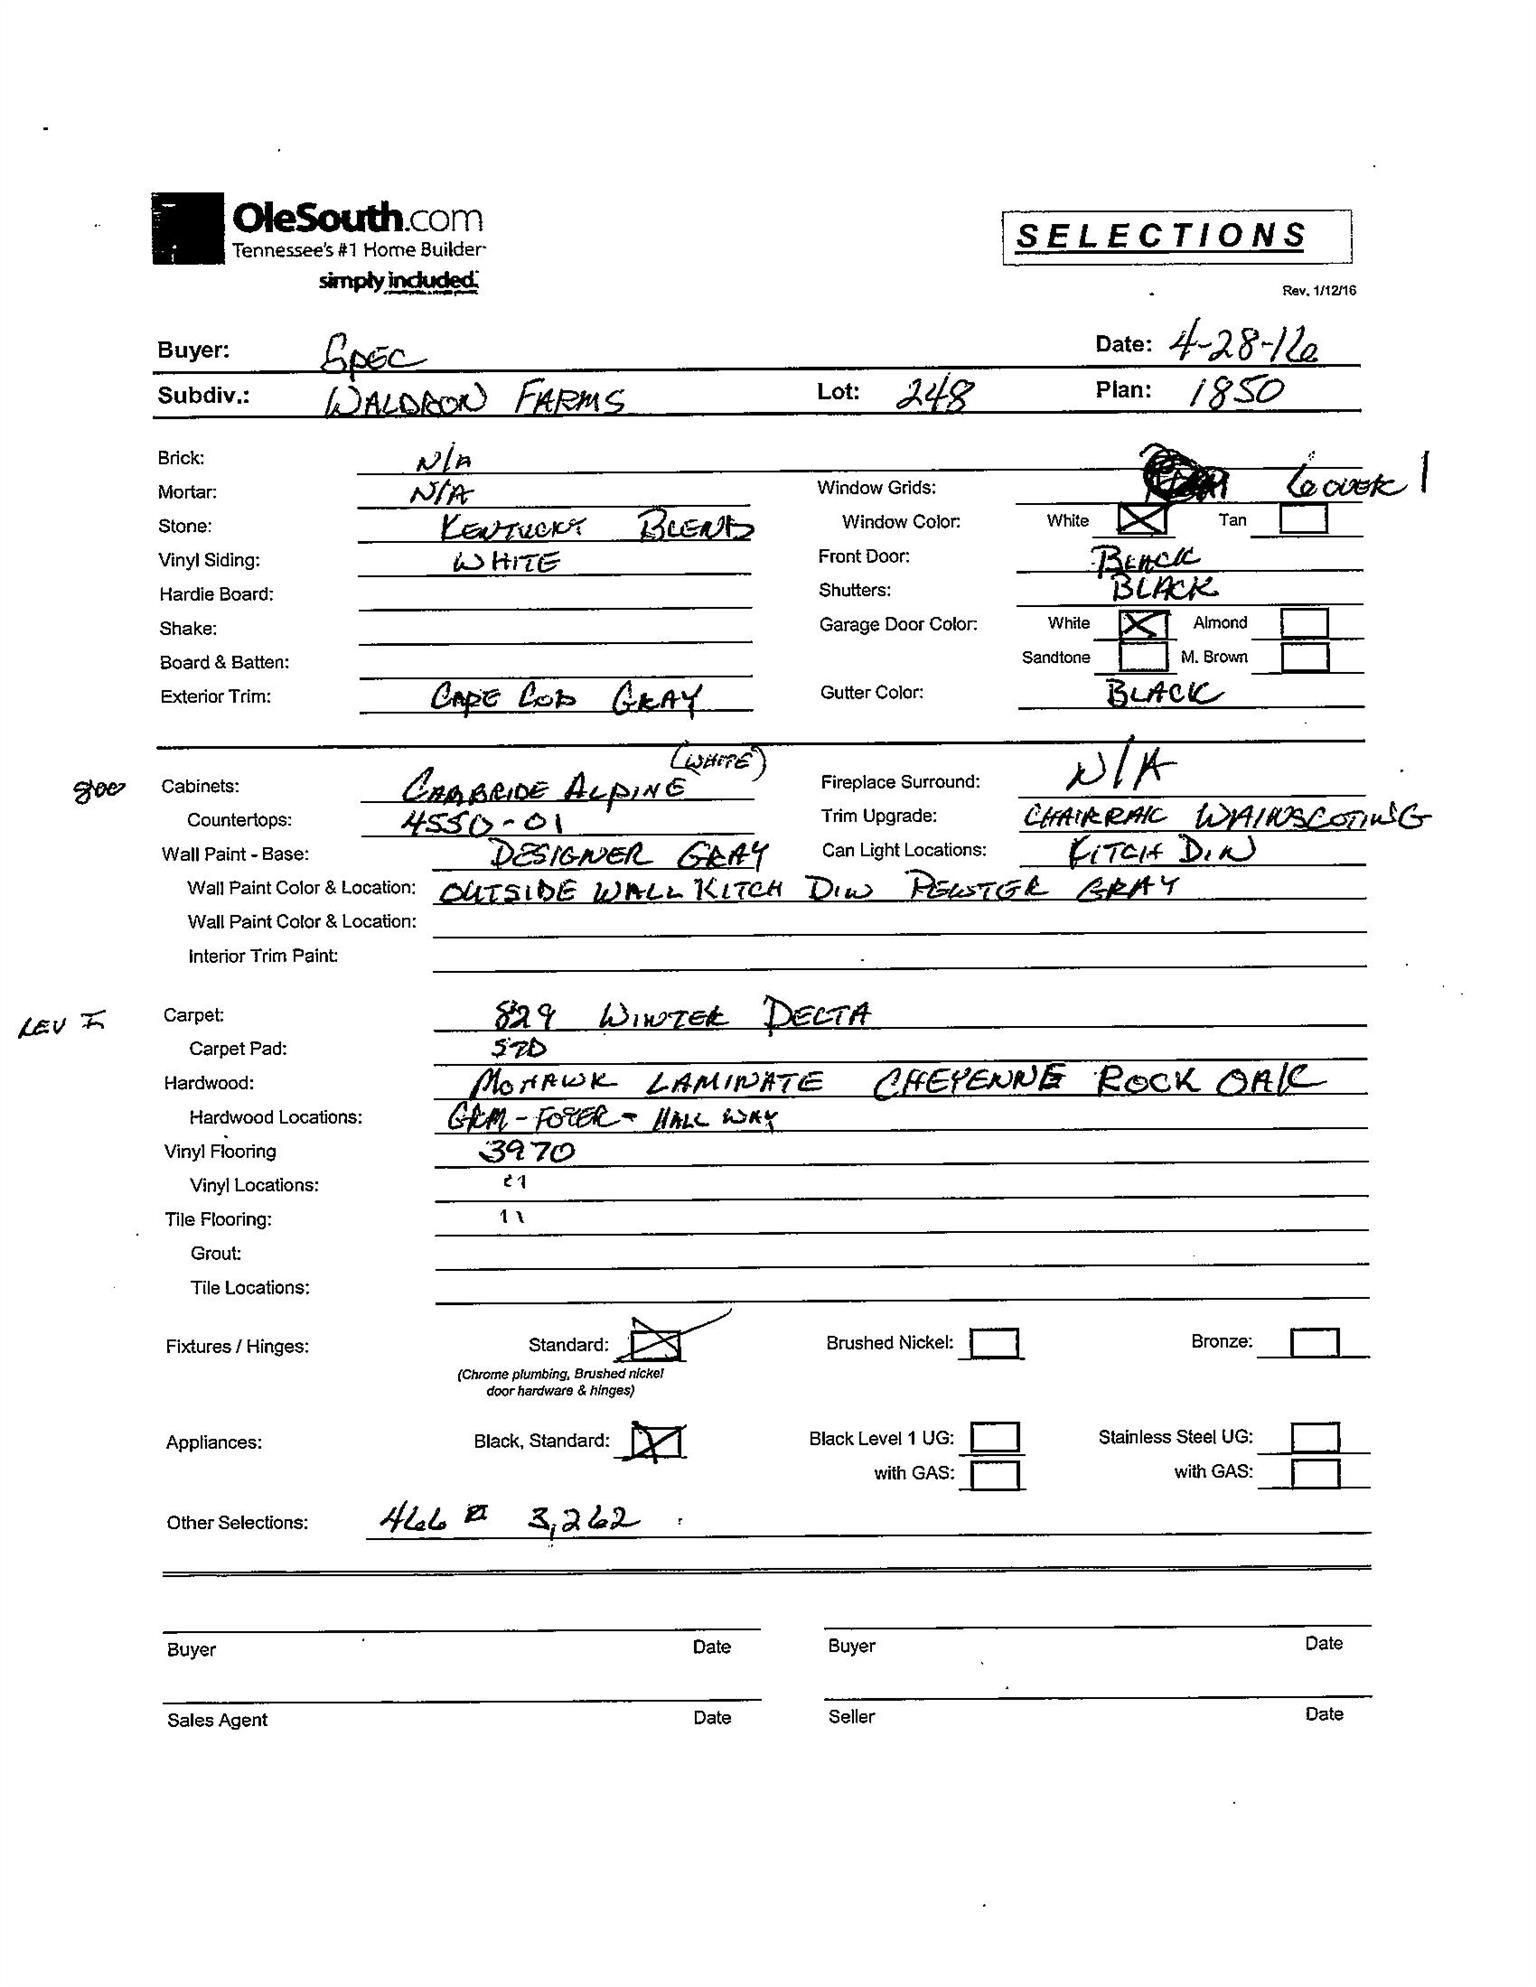 OleSouth.com
Tennessee's #1 Home Builder
simply included.
SELECTIONS
Rev. 1/12/16
Buyer: SPEC Date: 4-28-16
Subdiv.: WALDRON FARMS Lot: 248 Plan: 1850
Brick: N/A
Mortar: N/A Window Grids: 6 OVER 1
Stone: KENTUCKY BLEND Window Color: White Tan
Vinyl Siding: WHITE Front Door: BLACK
Hardie Board: Shutters: BLACK
Shake: Garage Door Color: White Almond
Board & Batten: Sandtone M. Brown
Exterior Trim: CAPE COD GRAY Gutter Color: BLACK
(WHITE)
800 Cabinets: CAMBRIDE ALPINE Fireplace Surround: N/A
Countertops: 4550-01 Trim Upgrade: CHAIRRAIL WAINSCOTING
Wall Paint - Base: DESIGNER GRAY Can Light Locations: KITCH DIN
Wall Paint Color & Location: OUTSIDE WALL KITCH DIN PEWTER GRAY
Wall Paint Color & Location:
Interior Trim Paint:
LEV I Carpet: 829 WINTER DELTA
Carpet Pad: STD
Hardwood: MOHAWK LAMINATE CHEYENNE ROCK OAK
Hardwood Locations: GRM - FOYER - HALL WAY
Vinyl Flooring 3970
Vinyl Locations: "
Tile Flooring: "
Grout:
Tile Locations:
Fixtures / Hinges: Standard: Brushed Nickel: Bronze:
(Chrome plumbing, Brushed nickel
door hardware & hinges)
Appliances: Black, Standard: Black Level 1 UG: Stainless Steel UG:
with GAS: with GAS:
Other Selections: 466 3,262
Buyer Date Buyer Date
Sales Agent Date Seller Date